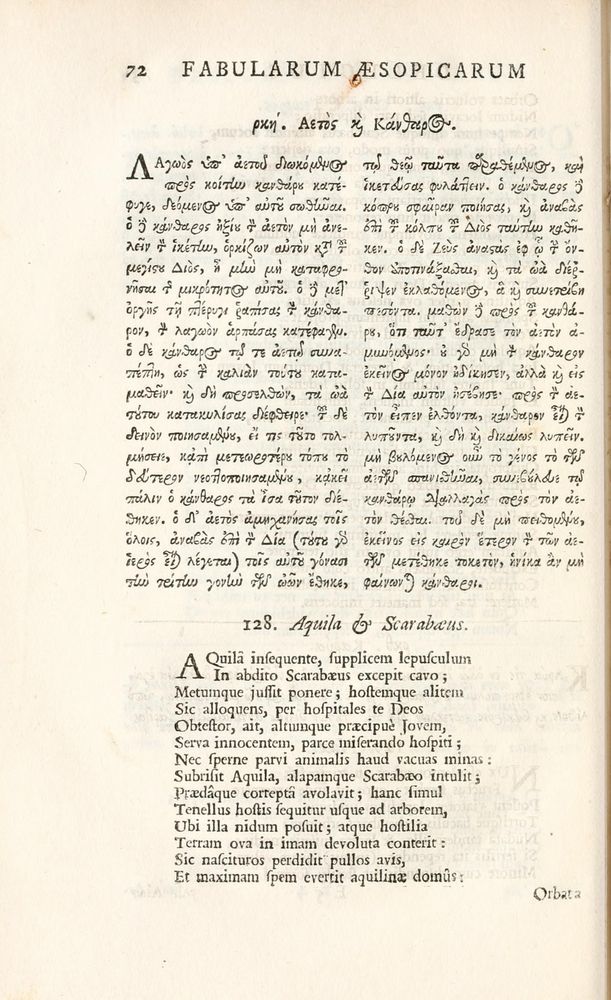 72 FABULARUM ÆSOPICARUM
ρκή. Αετὸς ϗ̀ Κάνθαρος.
ΛΑγωὸς ὑπ' ἀετοῦ διωκόμενος
πρὸς κοίτην κανθάρου κατέ-
φυγε, δεόμενος ὑπ' αὐτοῦ σωθῆναι.
ὁ δὲ κάνθαρος ἠξίου τὸν ἀετὸν μὴ ἀνε-
λεῖν τὸν ἱκέτην, ὁρκίζων αὐτὸν κατὰ τοῦ
μεγίστου Διὸς, ἦ μὴν μὴ καταφρο-
νῆσαι τῆς μικρότητος αὐτοῦ. ὁ δὲ μετ'
ὀργῆς τῇ πτέρυγι ῥαπίσας τὸν κάνθα-
ρον, τὸν λαγωὸν ἁρπάσας κατέφαγεν.
ὁ δὲ κάνθαρος τῷ τε ἀετῷ συνα-
πέπτη, ὡς τὴν καλιὰν τούτου κατα-
μαθεῖν· ϗ̀ δὴ προσελθὼν, τὰ ὠὰ
τούτου κατακυλίσας διέφθειρε· τοῦ δὲ
δεινὸν ποιησαμένου, εἴ τις τοῦτο τολ-
μήσειε, κἀπὶ μετεωροτέρου τόπου τὸ
δεύτερον νεοττοποιησαμένου, κἀκεῖ
πάλιν ὁ κάνθαρος τὰ ἴσα τοῦτον διέ-
θηκεν. ὁ δ' ἀετὸς ἀμηχανήσας τοῖς
ὅλοις, ἀναβὰς ἐπὶ τὸν Δία (τούτου γὸ
ἱερὸς εἶναι λέγεται) τοῖς αὐτοῦ γόνασι
τὴν τρίτην γονὴν τῶν ὠῶν ἔθηκε,
τῷ θεῷ ταῦτα παραθέμενος, καὶ
ἱκετεύσας φυλάττειν. ὁ κάνθαρος δὲ
κόπρου σφαῖραν ποιήσας, ϗ̀ ἀναβὰς
ἐπὶ τοῦ κόλπου τοῦ Διὸς ταύτην καθῆ-
κεν. ὁ δὲ Ζεὺς ἀναστὰς ἐφ' ᾧ τὸν ὄν-
θον ἀποτινάξασθαι, ϗ̀ τὰ ὠὰ διέῤ-
ῥιψεν ἐκλαθόμενος, ἃ ϗ̀ συνετρίβη
πεσόντα. μαθὼν δὲ πρὸς τοῦ κανθά-
ρου, ὅτι ταῦτ' ἔδρασε τὸν ἀετὸν ἀ-
μυνόμενος· οὐ γὸ μὴ τὸν κάνθαρον
ἐκεῖνος μόνον ἠδίκησεν, ἀλλὰ ϗ̀ εἰς
τὸν Δία αὐτὸν ἠσέβησε· πρὸς τὸν ἀε-
τὸν εἶπεν ἐλθόντα, κάνθαρον εἶναι τὸν
λυποῦντα, ϗ̀ δὴ ϗ̀ δικαίως λυπεῖν.
μὴ βουλόμενος οὖν τὸ γένος τὸ τῶν
ἀετῶν σπανισθῆναι, συνεβούλευε τῷ
κανθάρῳ διαλλαγὰς πρὸς τὸν ἀε-
τὸν θέσθαι. τοῦ δὲ μὴ πειθομένου,
ἐκεῖνος εἰς καιρὸν ἕτερον τὸν τῶν ἀε-
τῶν μετέθηκε τοκετὸν, ἡνίκα ἂν μὴ
φαίνωνται κάνθαροι.
128. Aquila & Scarabæus.
AQuilâ insequente, supplicem lepusculum
In abdito Scarabæus excepit cavo;
Metumque jussit ponere; hostemque alitem
Sic alloquens, per hospitales te Deos
Obtestor, ait, altumque præcipuè Jovem,
Serva innocentem, parce miserando hospiti;
Nec sperne parvi animalis haud vacuas minas:
Subrisit Aquila, alapamque Scarabæo intulit;
Prædâque correptâ avolavit; hanc simul
Tenellus hostis sequitur usque ad arborem,
Ubi illa nidum posuit; atque hostilia
Terram ova in imam devoluta conterit:
Sic nascituros perdidit pullos avis,
Et maximam spem evertit aquilinæ domûs:
Orbata